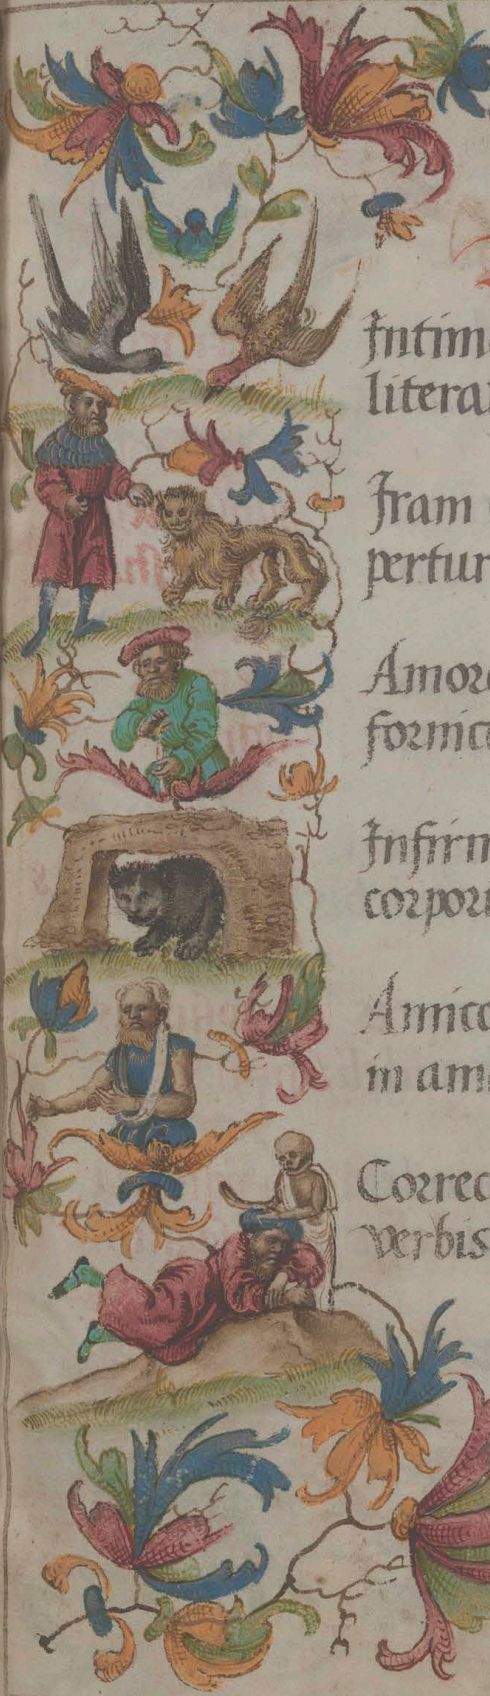 Intim
litera
Iram
pertur
Amor
fornic
Infirm
corpor
Amico
in am
Correc
verbis